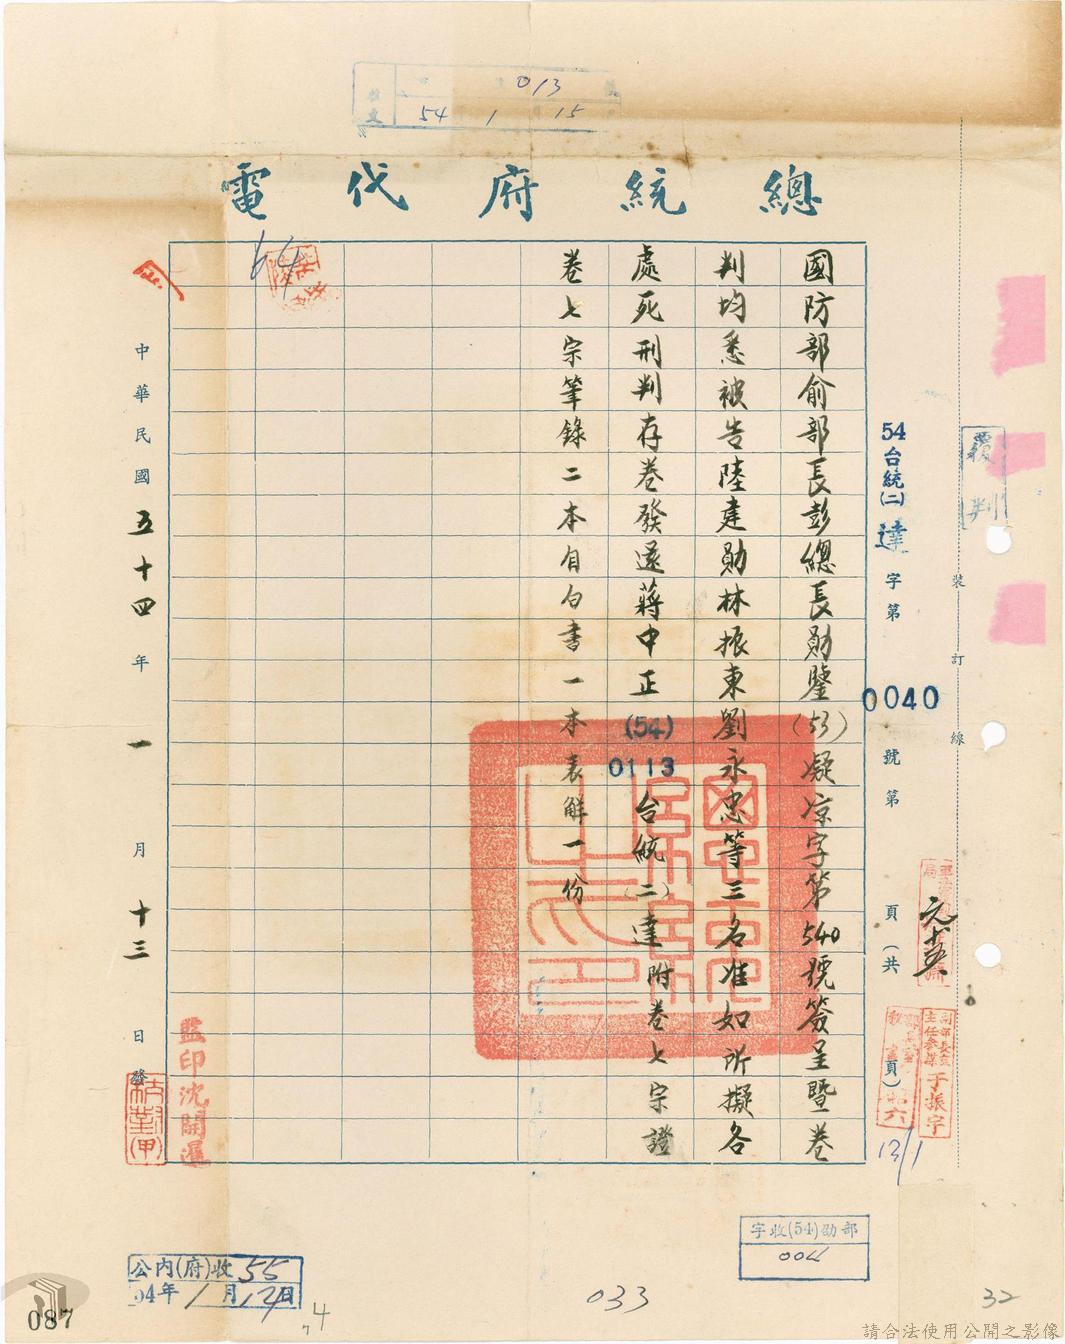 013
54 1 15
總統府代電
國防部俞部長彭總長勛鑒(53)凝凉字第540號簽呈暨卷
判均悉被告陸建勛林振東劉永忠等三名准如所擬各
處死刑判存卷發還蔣中正(54)0113台統(二)達附卷七宗證
卷七宗筆錄二本自白書一本表解一份
64
覆判
54台統(二)達字第0040號第 頁(共 頁)
裝訂線
元十五
副部長室
主任參謀于振宇
13/1
中華民國五十四年一月十三日發
監印沈開暹
字收(54)勁部
公內(府)收55
54年1月14日
033
32
087
請合法使用公開之影像